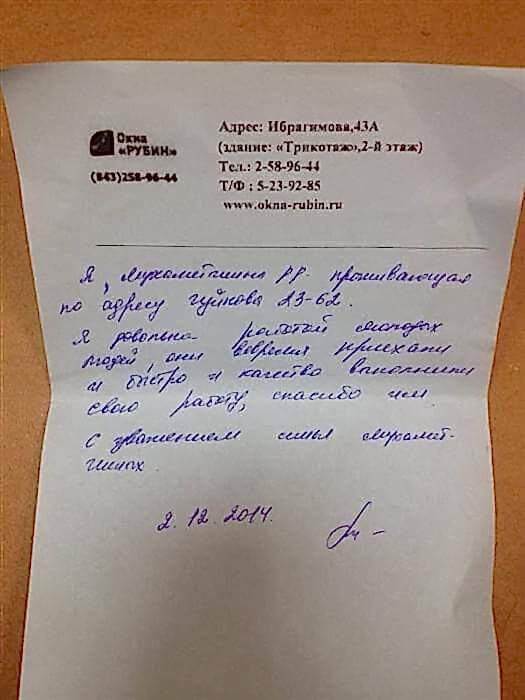 Окна
«РУБИН»
(843)258-96-44
Адрес: Ибрагимова,43А
(здание: «Трикотаж»,2-й этаж)
Тел.: 2-58-96-44
Т/Ф : 5-23-92-85
www.okna-rubin.ru
Я, Мухометшина РР. проживающая
по адресу 23-62.
Я довольна работой молодых
людей, они вовремя приехали
и быстро и качество выполнили
свою работу, спасибо им
С уважением семья Мухомет-
шиных.
2.12.2014.